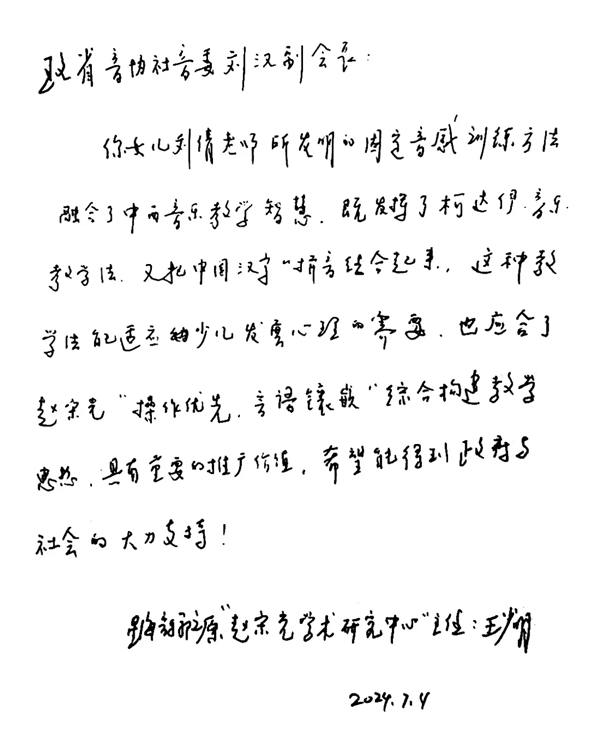 致省音协社音委刘汉副会长：
你女儿刘倩老师所发明的固定音感训练方法
融合了中西音乐教学智慧，既发挥了柯达伊音乐
教学法，又把中国汉字"拼音结合起来，这种教
学法能适应幼少儿发展心理的需要，也应合了
赵宋光"操作优先，音语镶嵌"综合构建教学
思想，具有重要的推广价值，希望能得到政府与
社会的大力支持！
"赵宋光学术研究中心"主任：王少明
2024.7.4